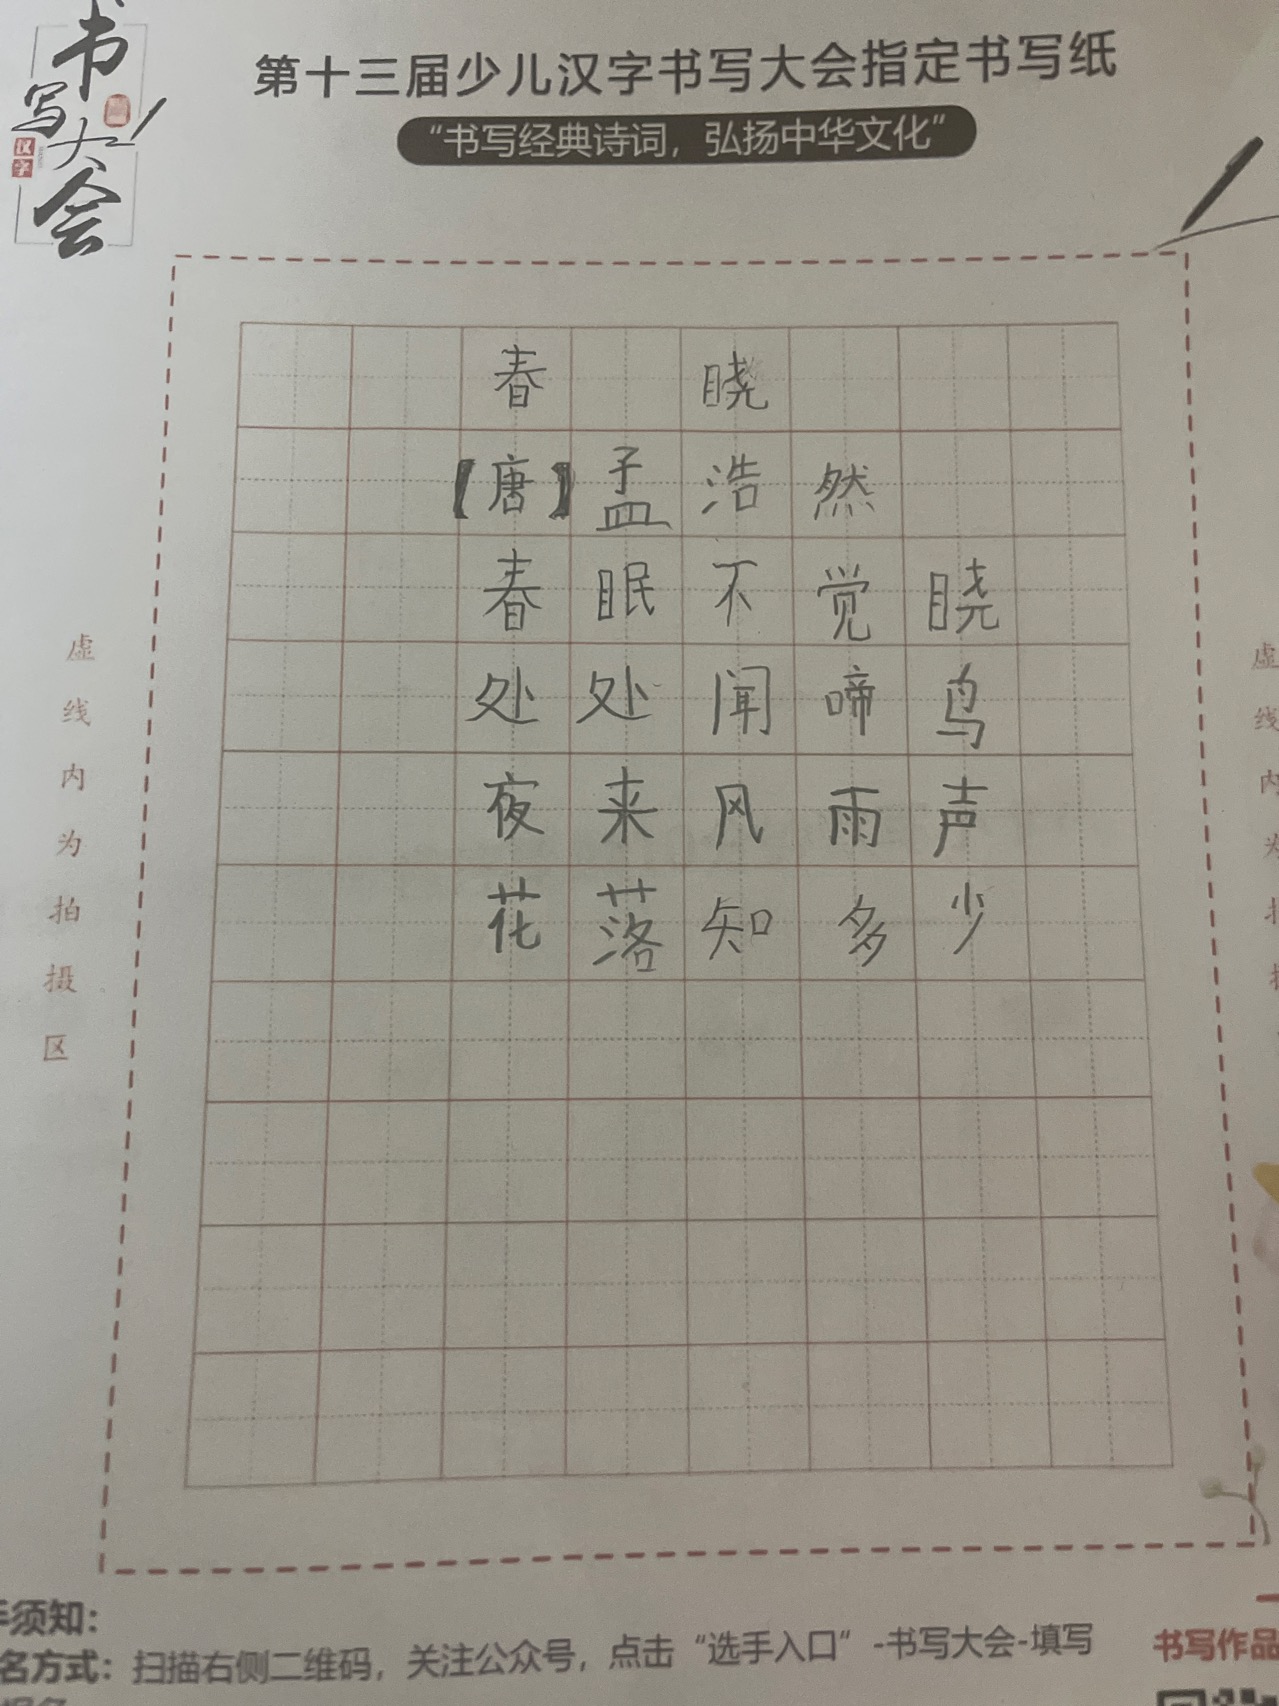 书写大会
汉字
第十三届少儿汉字书写大会指定书写纸
“书写经典诗词，弘扬中华文化”
春晓
【唐】孟浩然
春眠不觉晓
处处闻啼鸟
夜来风雨声
花落知多少
虚线内为拍摄区
虚线内
手须知：
名方式：扫描右侧二维码，关注公众号，点击“选手入口”-书写大会-填写
书写作品